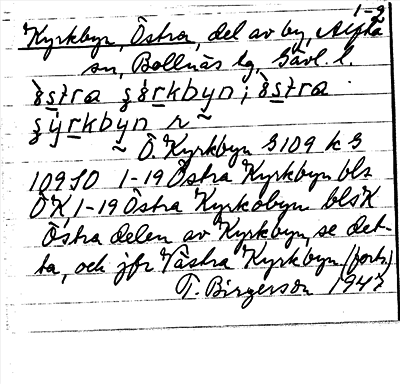 1-2
Kyrkbyn, Östra, del av by, Alfta
sn, Bollnäs tg. Gävl. l.
Ö. Kyrkbyn G109 k S
109 SO 1-19 Östra Kyrkbyn bls
ÖK, 1-19 Östra Kyrkobyn bls K
Östra delen av Kyrkbyn, se det-
ta, och jfr Västra Kyrkbyn (forts.)
T. Birgerson 1947